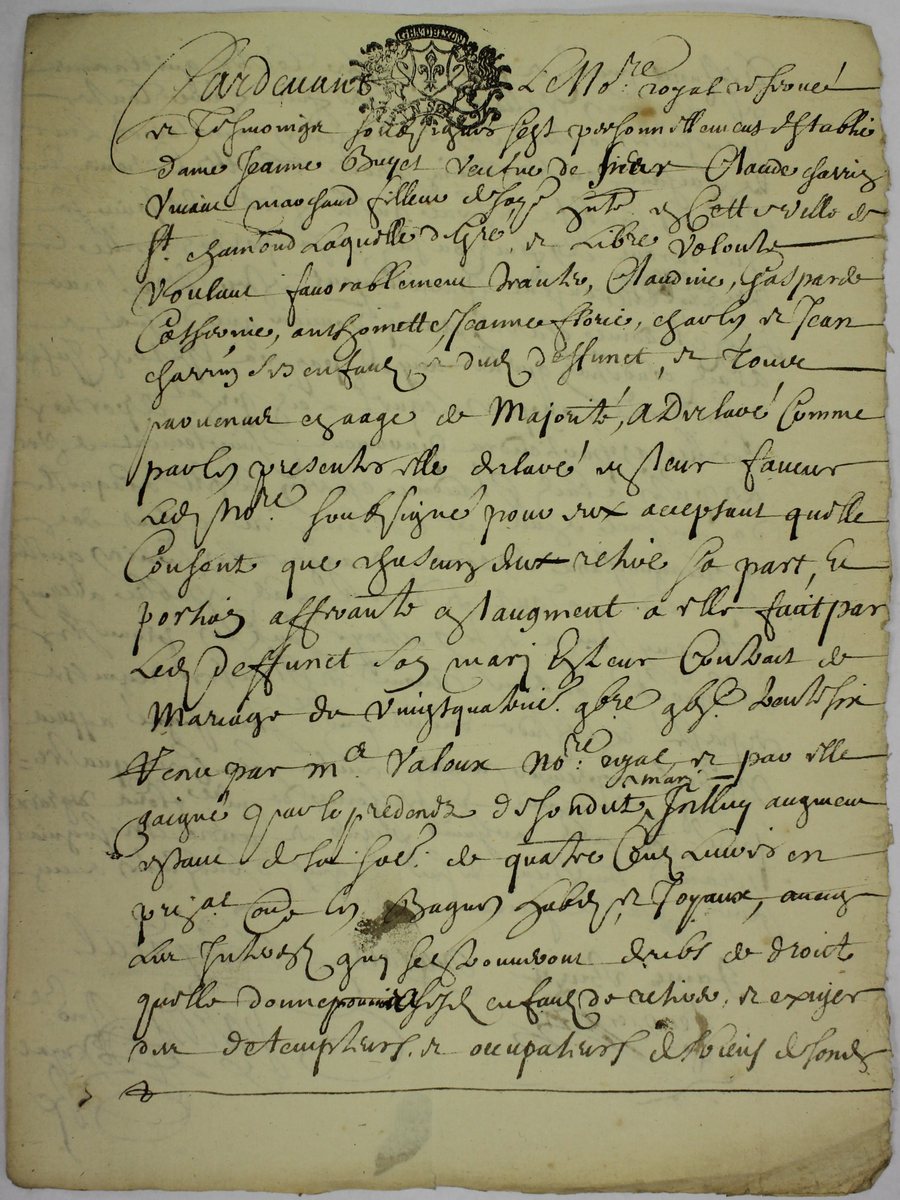 GEN. DE LYON
Pardevant Le No.re royal reservé
et Tesmoings soubsignés sest personnellement establie
dame Jeanne Buyet veufve de sieur Claude charrin
vivant marchand filleur de soye en cette ville de
St. chamond Laquelle de gré et Libre volonté
voulant favorablement traiter, Claudine, gasparde
Catherine, anthoinette, Jeanne florie, charles et Jean
charrin ses enfans, et dud deffunct, et tous
parvenus en aage de Majorité, a Declaré Comme
par les presentes elle declare en leur faveur
Led No.re soubsigné pour eux acceptant quelle
Consent que chascung deux retire sa part, et
portion afferante en laugment a elle fait par
Led deffunct son mary en leur Contrait de
Mariage du vingtquatrie. 9bre trentesix
receu par m.e Valoux No.re royal et par elle
gaigné par le predeces de sondit mari, Jcelluy augment
estant de la so.e de quatre Cens Livres en
prin.al les Bagues habits et Joyaux, avecq
Les Jnterests quy se trouveront deubs de droit
quelle donne a sesd enfans de retirer et exiger
des detempteurs et occupateurs des biens de sond